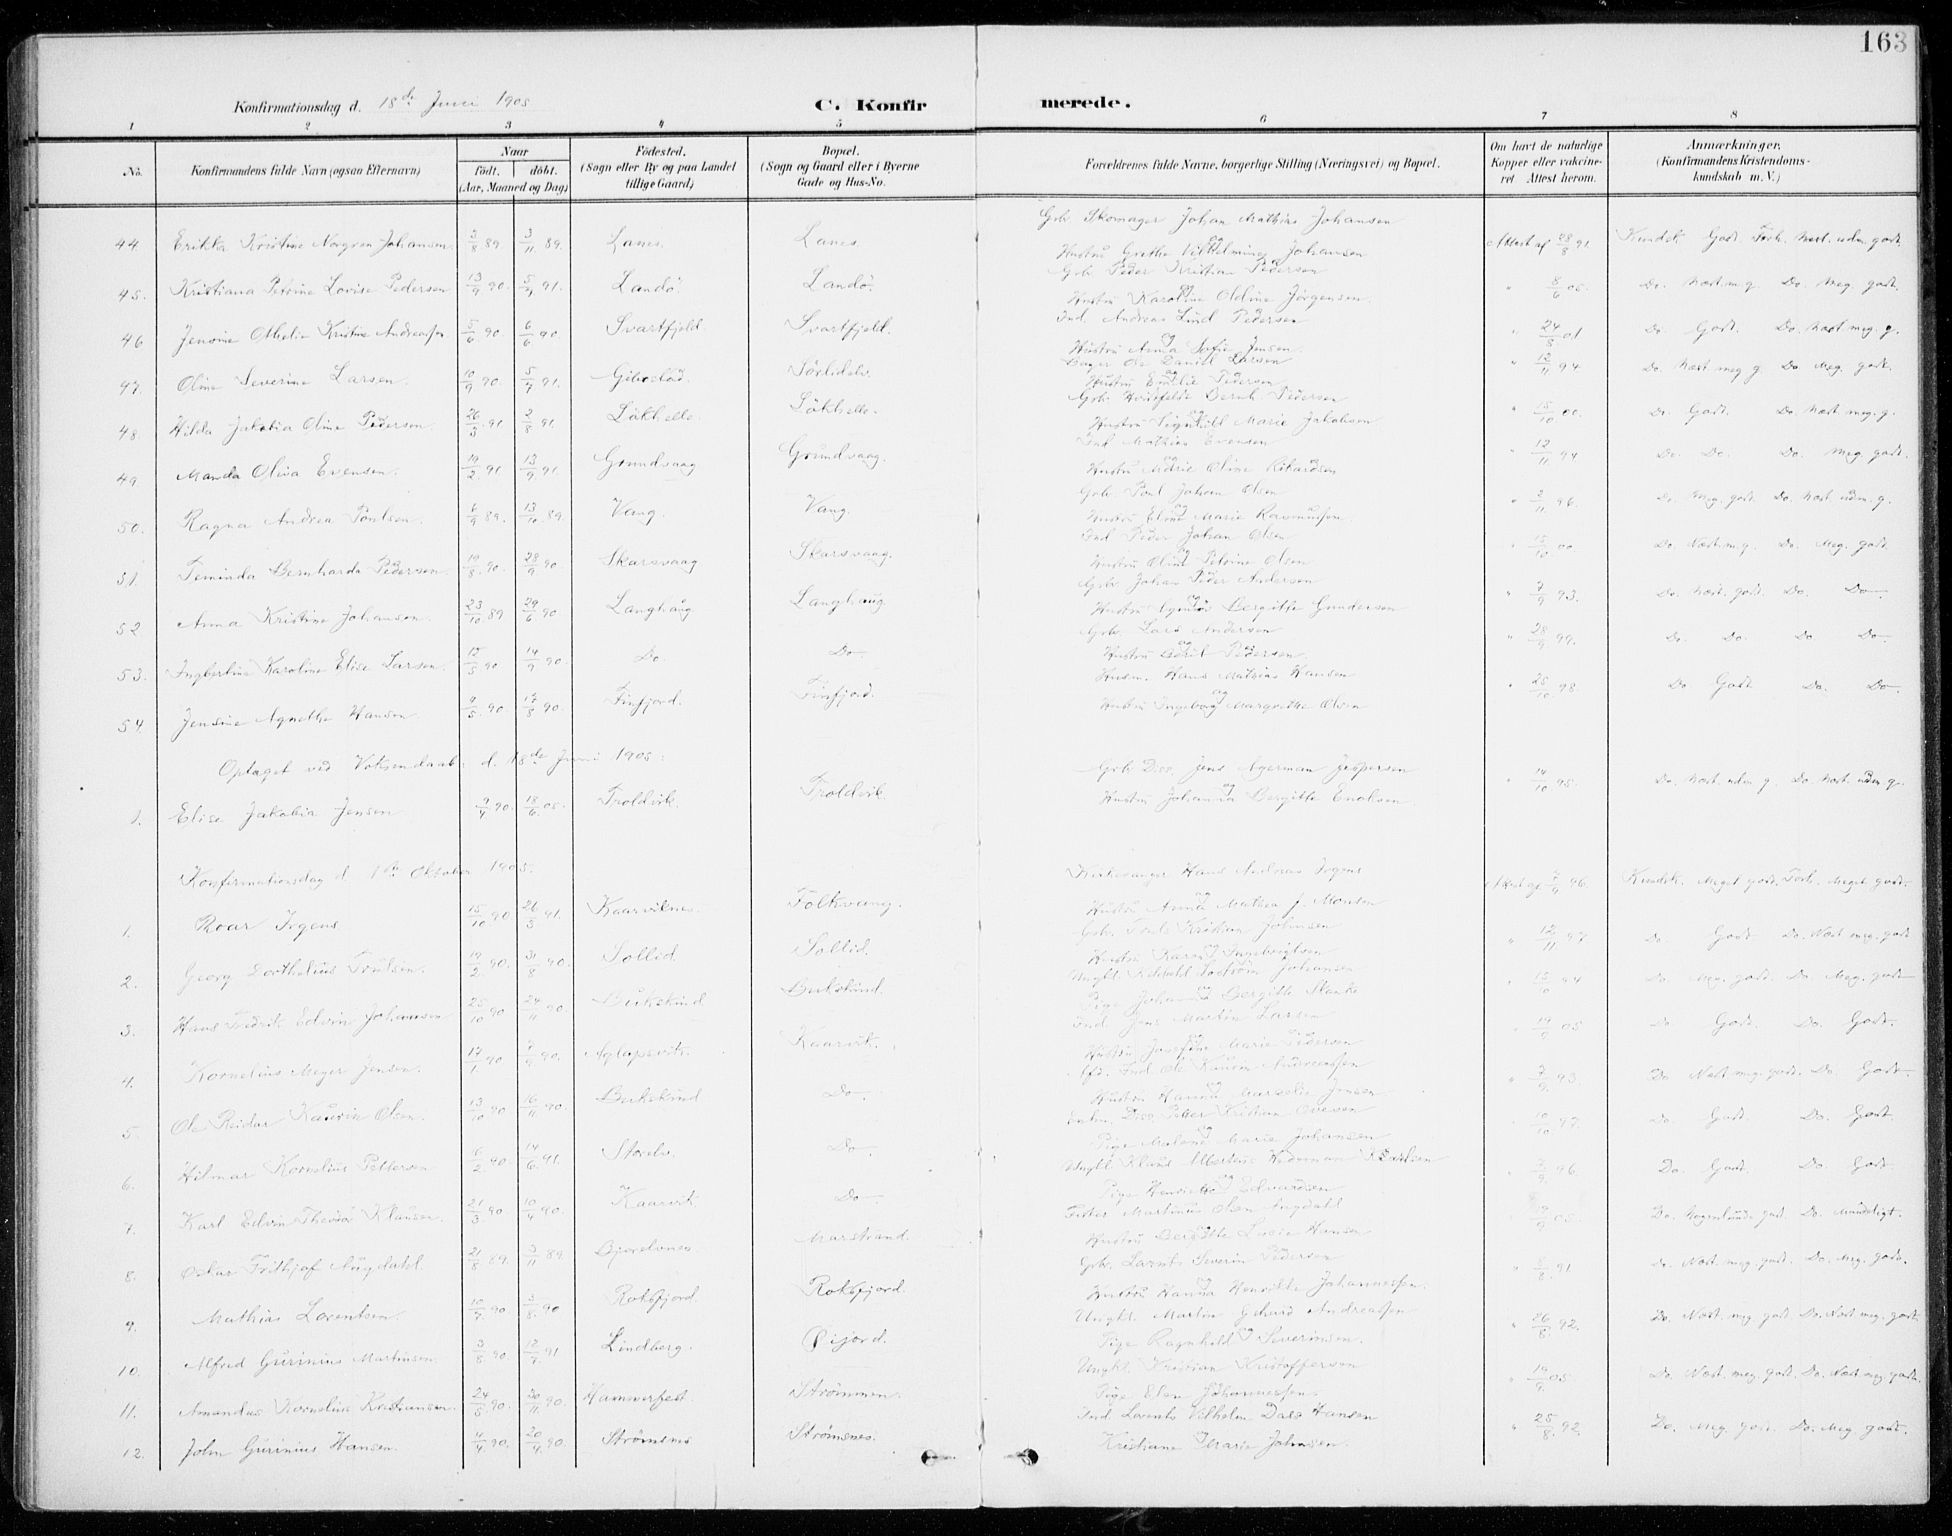 163
Konfirmationsdag d. 18de Juni 1905
C. Konfirmerede.
1 2 3 4 5 6 7 8
No. Konfirmandens fulde Navn (ogsaa Efternavn) Naar født. døbt. (Aar, Maaned og Dag) Fødested. (Sogn eller By og paa Landet tillige Gaard) Bopæl. (Sogn og Gaard eller i Byerne Gade og Hus-No. Forældrenes fulde Navne, borgerlige Stilling (Næringsvei) og Bopæl. Om havt de naturlige Kopper eller vakcineret Attest herom. Anmærkninger. (Konfirmandens Kristendomskundskab m. V.)
Gbr Skomager Johan Mathias Johansen
44. Erikka Kristine Norgren Johansen. 3/8 89 3/11 89. Lanes. Lanes Attest af 28/8 91. Kundsk. Godt. Forh. Næst. uden godt.
Hustru Grethe Vilhelmine Johansen
Gbr Peder Kristian Pedersen
45. Kristiana Petrine Lovise Pedersen 13/9 90. 5/7 91. Landö Landö. " 8/6 05. Do. Næst m. g. Do. Meg. godt.
Hustru Karoline Oldine Jörgensen.
Ind. Andreas Lind Pedersen
46 Jensine Othelie Kristine Andreassen 5/6 90. 6/6 90. Svartfjeld. Svartfjeld. " 24/5 01 Do. Godt. Do. Næst meg. g.
Hustru Anna Sofie Jensen.
Ole Daniel Larsen
47. Oline Severine Larsen. 10/9 90. 5/7 91. Gibostad. " 12/11 94 Do. Næst meg g. Do. Meg. godt.
Hustru Emilie Pedersen
Gbr. Hvidfeldt Bernh. Pedersen
48. Hilda Jakobia Oline Pedersen 26/3 91 2/8 91. Lökhelle. Lökhelle. " 15/10 00. Do. Godt. Do. Næst meg. g.
Hustru Marie Jakobsen
Ind Mathias Evensen
49. Manda Oliva Evensen. 19/2 91 13/9 91. Grundvaag Grundvaag. " 12/11 94 Do. Do. Do. Meg. godt.
Hustru Marie Oline Rikardsen
Gbr. Poul Johan Olsen
50. Ragna Andrea Poulsen. 6/9 89. 13/10 89 Vang. Vang. " 2/11 96. Do. Meg. godt Do. Næst uden g.
Hustru Eline Marie Rasmussen.
Ind Peder Johan Olsen
51. Teminda Bernharda Pedersen. 19/8 90. 28/9 90 Skarsvaag Skarsvaag. " 15/10 00 Do. Næst m. g. Do. Meg. godt
Hustru Oline Petrine Olsen
Gbr. Johan Peder Andersen
52 Anna Kristine Johansen. 23/10 89 29/6 90. Langhaug Langhaug. " 7/9 93. Do. Næst. godt. Do. Do.
Hustru Bergitte Gundersen
Gbr. Lars Andersen
53. Ingbertine Karoline Elise Larsen. 15/5 90 14/9 90. Do. Do. " 28/9 99. Do. Do. Do Do.
Hustru Berit Pedersen.
Husm. Hans Mathias Hansen
54. Jensine Agnethe Hansen 4/5 90. 17/8 90. Finfjord. Finfjord. " 25/10 98. Do Godt Do. Do.
Hustru Ingeborg Margrethe Olsen
Optaget ved Voksendaab: d. 18de Juni 1905:
Gbr Diss. Jens Agerman Jespersen
1. Elise Jakobia Jensen 9/4 90. 18/6 05. Troldvik. Troldvik " 14/10 95. Do. Næst uden g. Do. Næst uden g.
Hustru Johanna Bergitte Enoksen
Konfirmationsdag d. 1ste Oktober 1905.
Kirkesanger Hans Andreas Irgens
1. Roar Irgens 15/10 90 26/3 91. Kaarviknes. Folkvang. Attest af 7/9 96. Kundsk. Meget godt. Forh. Meget godt.
Hustru Anna Mathea J. Monsen
Gbr. Truls Kristian Johnsen
2. Georg Dorthelius Trulsen. 19/2 90. 31/8 90. Sollid Sollid. " 12/11 97 Do. Godt Do. Næst meg. godt
Hustru Karen Ingebrigtsen
Ungkl. Johansen
3. Hans Fredrik Edvin Johansen 25/10 90 24/11 90. Bukskind Bukskind " 15/10 94 Do. Meg. godt. Do. Meg. godt
Pige Johanna Bergitte
Ind. Jens Martin Larsen
4. Kornelius Meyer Jensen. 17/1 90 7/9 90. Aglapsvik. Kaarvik. " 19/9 05 Do. Godt. Do. Godt.
Hustru Josefine Marie Pedersen
Afd. Ind Ole Kaurin Andreassen
5. Ole Reidar Kaurin Olsen. 13/10 90 16/11 90. Bukskind Do. " 7/9 93. Do. Næst meg. godt. Do. Godt.
Hustru Hanna Marselie Jensen
Diss. Petter Kristian Ovesen
6. Hilmar Kornelius Pettersen 6/2 90. 14/6 91. Storelv. Do. " 10/10 97. Do. Godt. Do. Godt.
Pige Malene Marie Johansen
Ungkl. Klaus Albertus Karlsen
7. Karl Edvin Theodor Klausen. 21/3 90. 10/4 90. Kaarvik Do. " 7/9 96. Do. Godt Do. Godt
Pige Henriette Edvardsen
Fisker Martinus Olsen Augdahl
8. Oskar Frithjof Augdahl. 21/8 89. 3/11 89 Gjorelvnes. Marstrand. 19/9 05. Do. Nogenlunde godt. Do. Mindeligt.
Hustru Bergitte Lucie Hansen
Gbr. Larnts Severin Pedersen
9. Mathias Lorentsen. 10/7 90 3/8 90 Roksfjord. Roksfjord. " 8/8 91 Do. Næst meg. godt. Do. Meg. godt.
Hustru Hanna Henrikke Johannessen.
Ungkl. Martin Gerhard Andreassen
10. Alfred Gurinius Martinsen. 3/8 90. 12/7 91 Lindberg. Øijord. " 26/8 92. Do. Næst. meg. godt Do. Næst meg. godt.
Pige Ragnhild Severinsen.
Ungkl. Kristian Kristoffersen
11. Amandus Kornelius Kristiansen. 24/5 90. 30/11 90. Hammerfest. Strömmen. " 19/9 05 Do. Næst meg godt. Do. Næst meg. godt.
Pige Elen Johannessen.
Ind Lorents Vilhelm Dass Hansen
12. John Gurinius Hansen. 4/4 90. 20/4 90. Strömsnes Strömsnes. " 25/8 92. Do. Meg. godt. Do. Meg godt.
Kristiane Marie Johnsen.